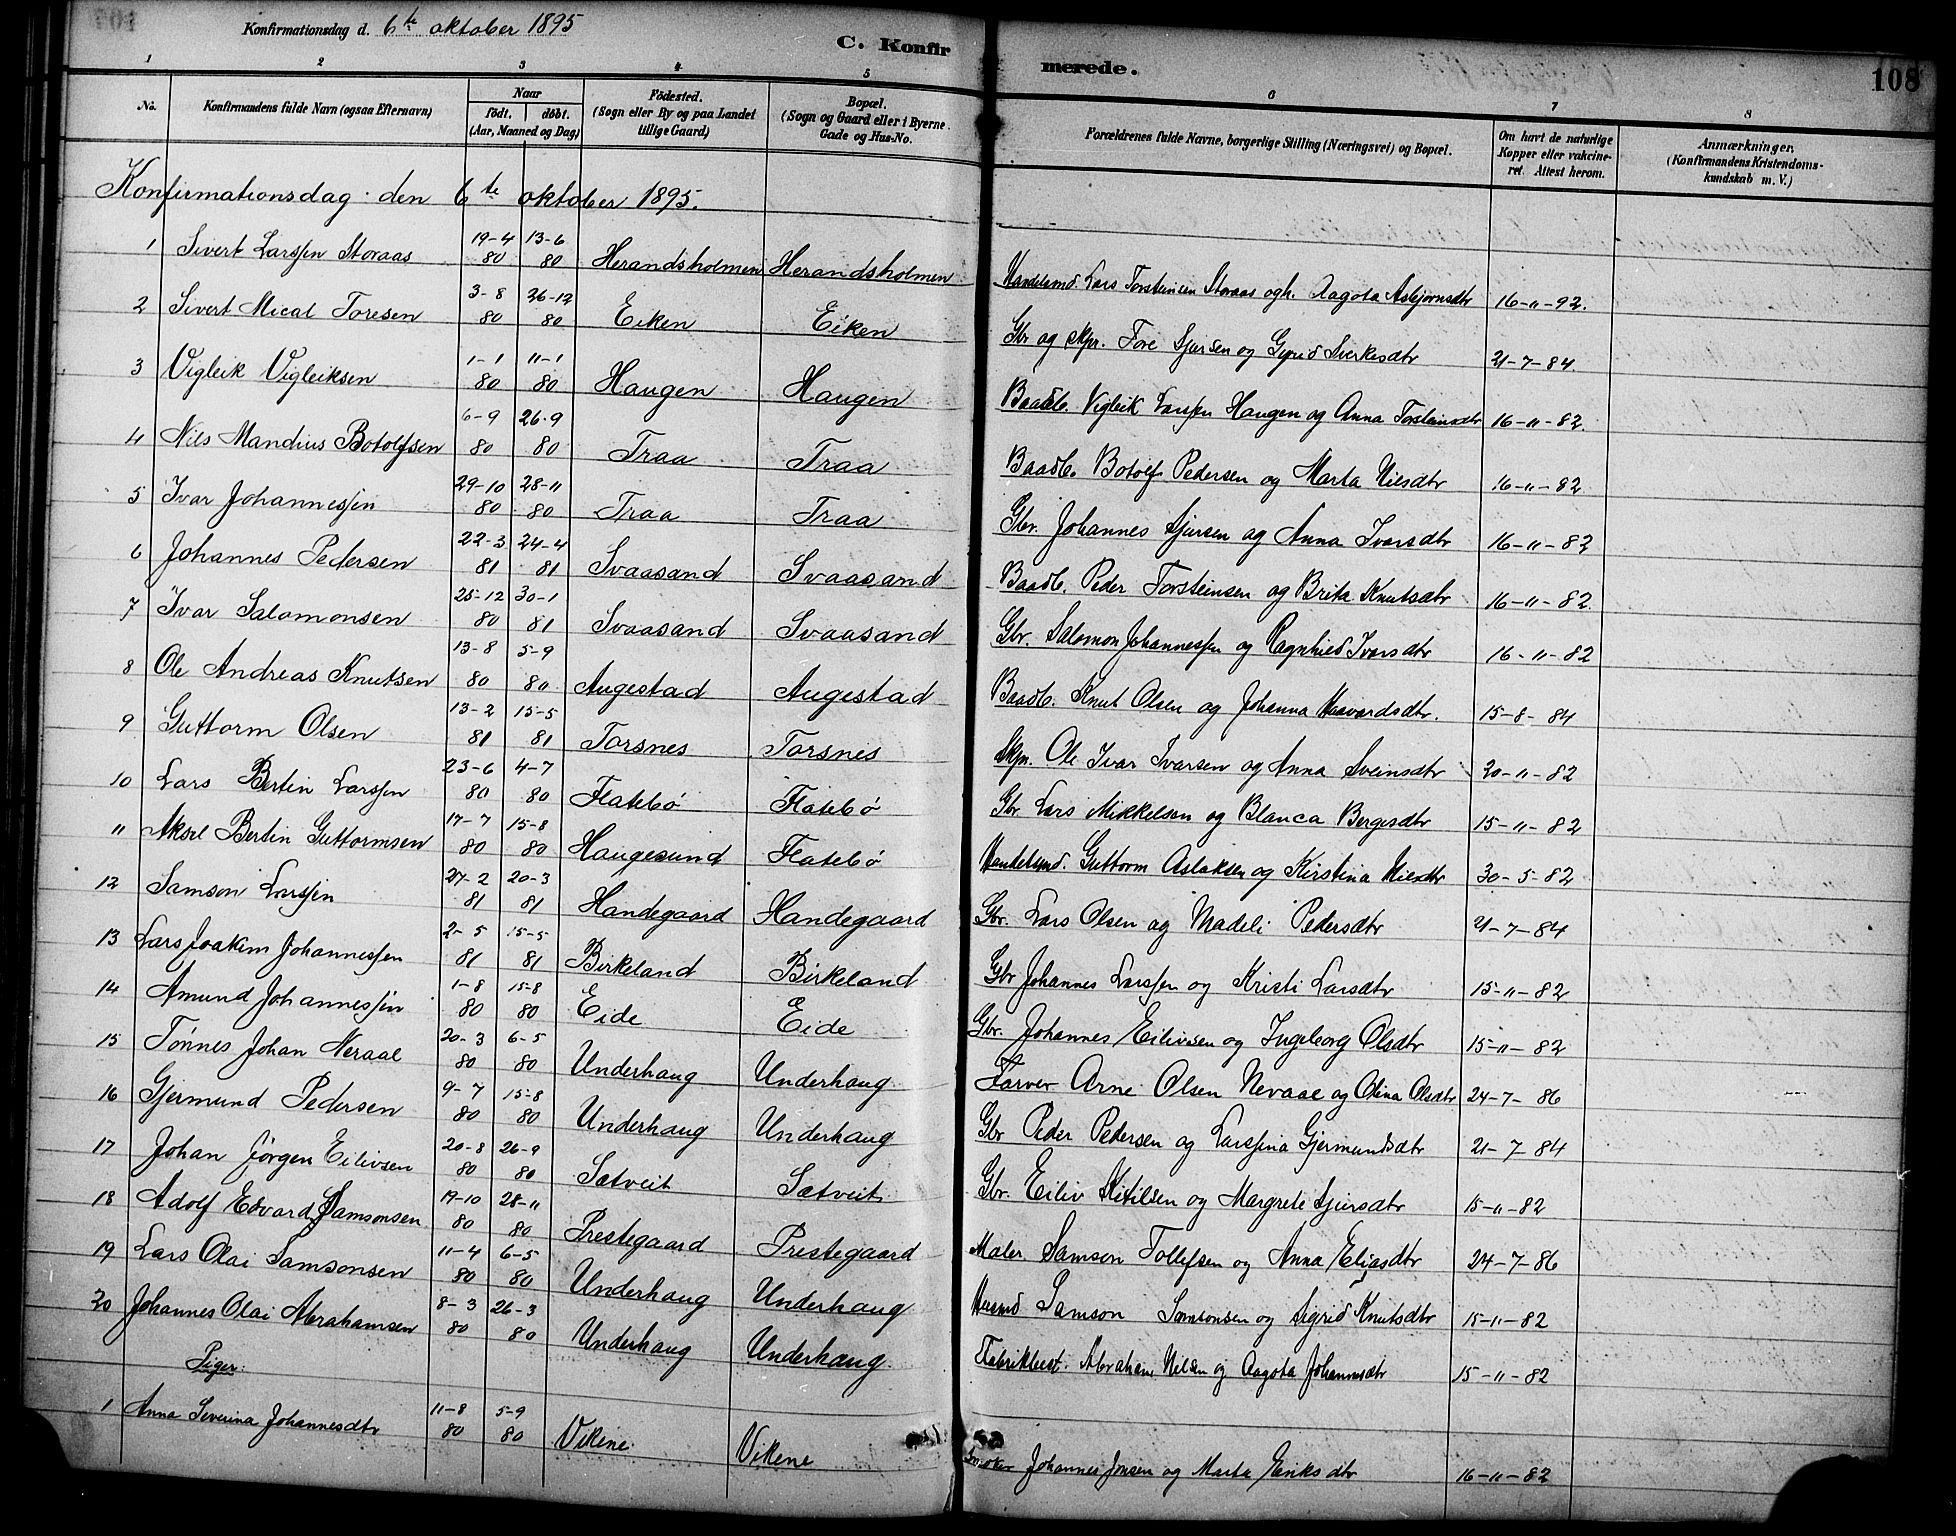 Konfirmationsdag d. 6te oktober 1895
C. Konfirmerede.
108
1 2 3 4 5 6 7 8
No. Konfirmandens fulde Navn (ogsaa Efternavn) Naar født. døbt. (Aar, Maaned og Dag) Fødested. (Sogn eller By og paa Landet tillige Gaard) Bopæl. (Sogn og Gaard eller i Byerne Gade og Hus-No. Forældrenes fulde Navne, borgerlige Stilling (Næringsvei) og Bopæl. Om havt de naturlige Kopper eller vakcineret. Attest herom. Anmærkninger. (Konfirmandens Kristendomskundskab m. V.)
Konfirmationsdag den 6te oktober 1895.
1 Sivert Larssen Storaas 19-4 80 13-6 80 Herandsholmen Herandsholmen Handelsmd. Lars Torsteinsen Storaas ogh. Aagota Asbjørnsdtr 16-11-92.
2 Sivert Mical Toresen 3-8 80 26-12 80 Eiken Eiken Gbr og skpr. Tore Sjursen og Gyrid Sverkesdtr 21-7-84.
3 Vigleik Vigleiksen 1-1 80 11-1 80 Haugen Haugen Baadb. Vigleik Larssen Haugen og Anna Torsteinsdtr 16-11-82.
4 Nils Mandius Botolfsen 6-9 80 26-9 80 Traa Traa Baadb. Botolf Pedersen og Marta Nilsdtr 16-11-82.
5 Ivar Johannessen 29-10 80 28-11 80 Traa Traa Gbr. Johannes Sjursen og Anna Ivarsdtr 16-11-82
6 Johannes Pedersen 22-3 81 24-4 81 Svaasand Svaasand Baadb. Peder Torsteinsen og Brita Knutsdtr 16-11-82.
7 Ivar Salomonsen 25-12 80 30-1 81 Svaasand Svaasand Gbr. Salomon Johannessen og Ragnhild Ivarsdtr 16-11-82
8 Ole Andreas Knutsen 13-8 80 5-9 80 Augestad Augestad Baadb. Knut Olsen og Johanna Haavardsdtr. 15-8-84
9 Guttorm Olsen 13-2 81 15-5 81 Torsnes Torsnes Skpr. Ole Ivar Ivarsen og Anna Sveinsdtr 20-11-82
10 Lars Bertin Larssen 23-6 80 4-7 80 Flatebø Flatebø Gbr Lars Mikkelsen og Blanca Bergesdtr 15-11-82
11 Aksel Bertin Guttormsen 17-7 80 15-8 80 Haugesund Flatebø Handelsmd. Guttorm Aslaksen og Kirstina Nilsdtr 30-5-82
12 Samson Larssen 27-2 81 20-3 81 Handegaard Handegaard Gbr. Lars Olsen og Madeli Pedersdtr 21-7-84
13 Lars Joakim Johannessen 2-5 81 15-5 81 Birkeland Birkeland Gbr Johannes Larssen og Kristi Larsdtr 15-11-82
14 Amund Johannessen 1-8 80 15-8 80 Eide Eide Gbr. Johannes Eilivsen og Ingeborg Olsdtr 15-11-82
15 Tønnes Johan Neraal 20-3 80 6-5 80 Underhaug Underhaug Farver Arne Olsen Nevaae og Olina Olsdtr 24-7-86
16 Gjermund Pedersen 9-7 80 15-8 80 Underhaug Underhaug Gbr Peder Pedersen og Larssina Gjermundsdtr 21-7-84
17 Johan Jørgen Eilivsen 20-8 80 26-9 80 Sætveit Sætveit Gbr. Eiliv Kitilsen og Margrete Sjursdtr 15-11-82
18 Adolf Edvard Samsonsen 19-10 80 28-11 80 Prestegaard Prestegaard Maler Samson Tollefsen og Anna Eliasdtr 24-7-86
19 Lars Olai Samsonsen 11-4 80 6-5 80 Underhaug Underhaug Husmd Samson Samsonsen og Sigrid Knutsdtr 15-11-82
20 Johannes Olai Abrahamsen 8-3 80 26-3 80 Underhaug Underhaug. Fabrikbest. Abraham Nilsen og Aagota Johannesdtr 15-11-82
Piger.
1 Anna Severina Johannesdtr 11-8 80 5-9 80 Vikene Vikene Johannes Jonsen og Marta Eriksdtr 16-11-82